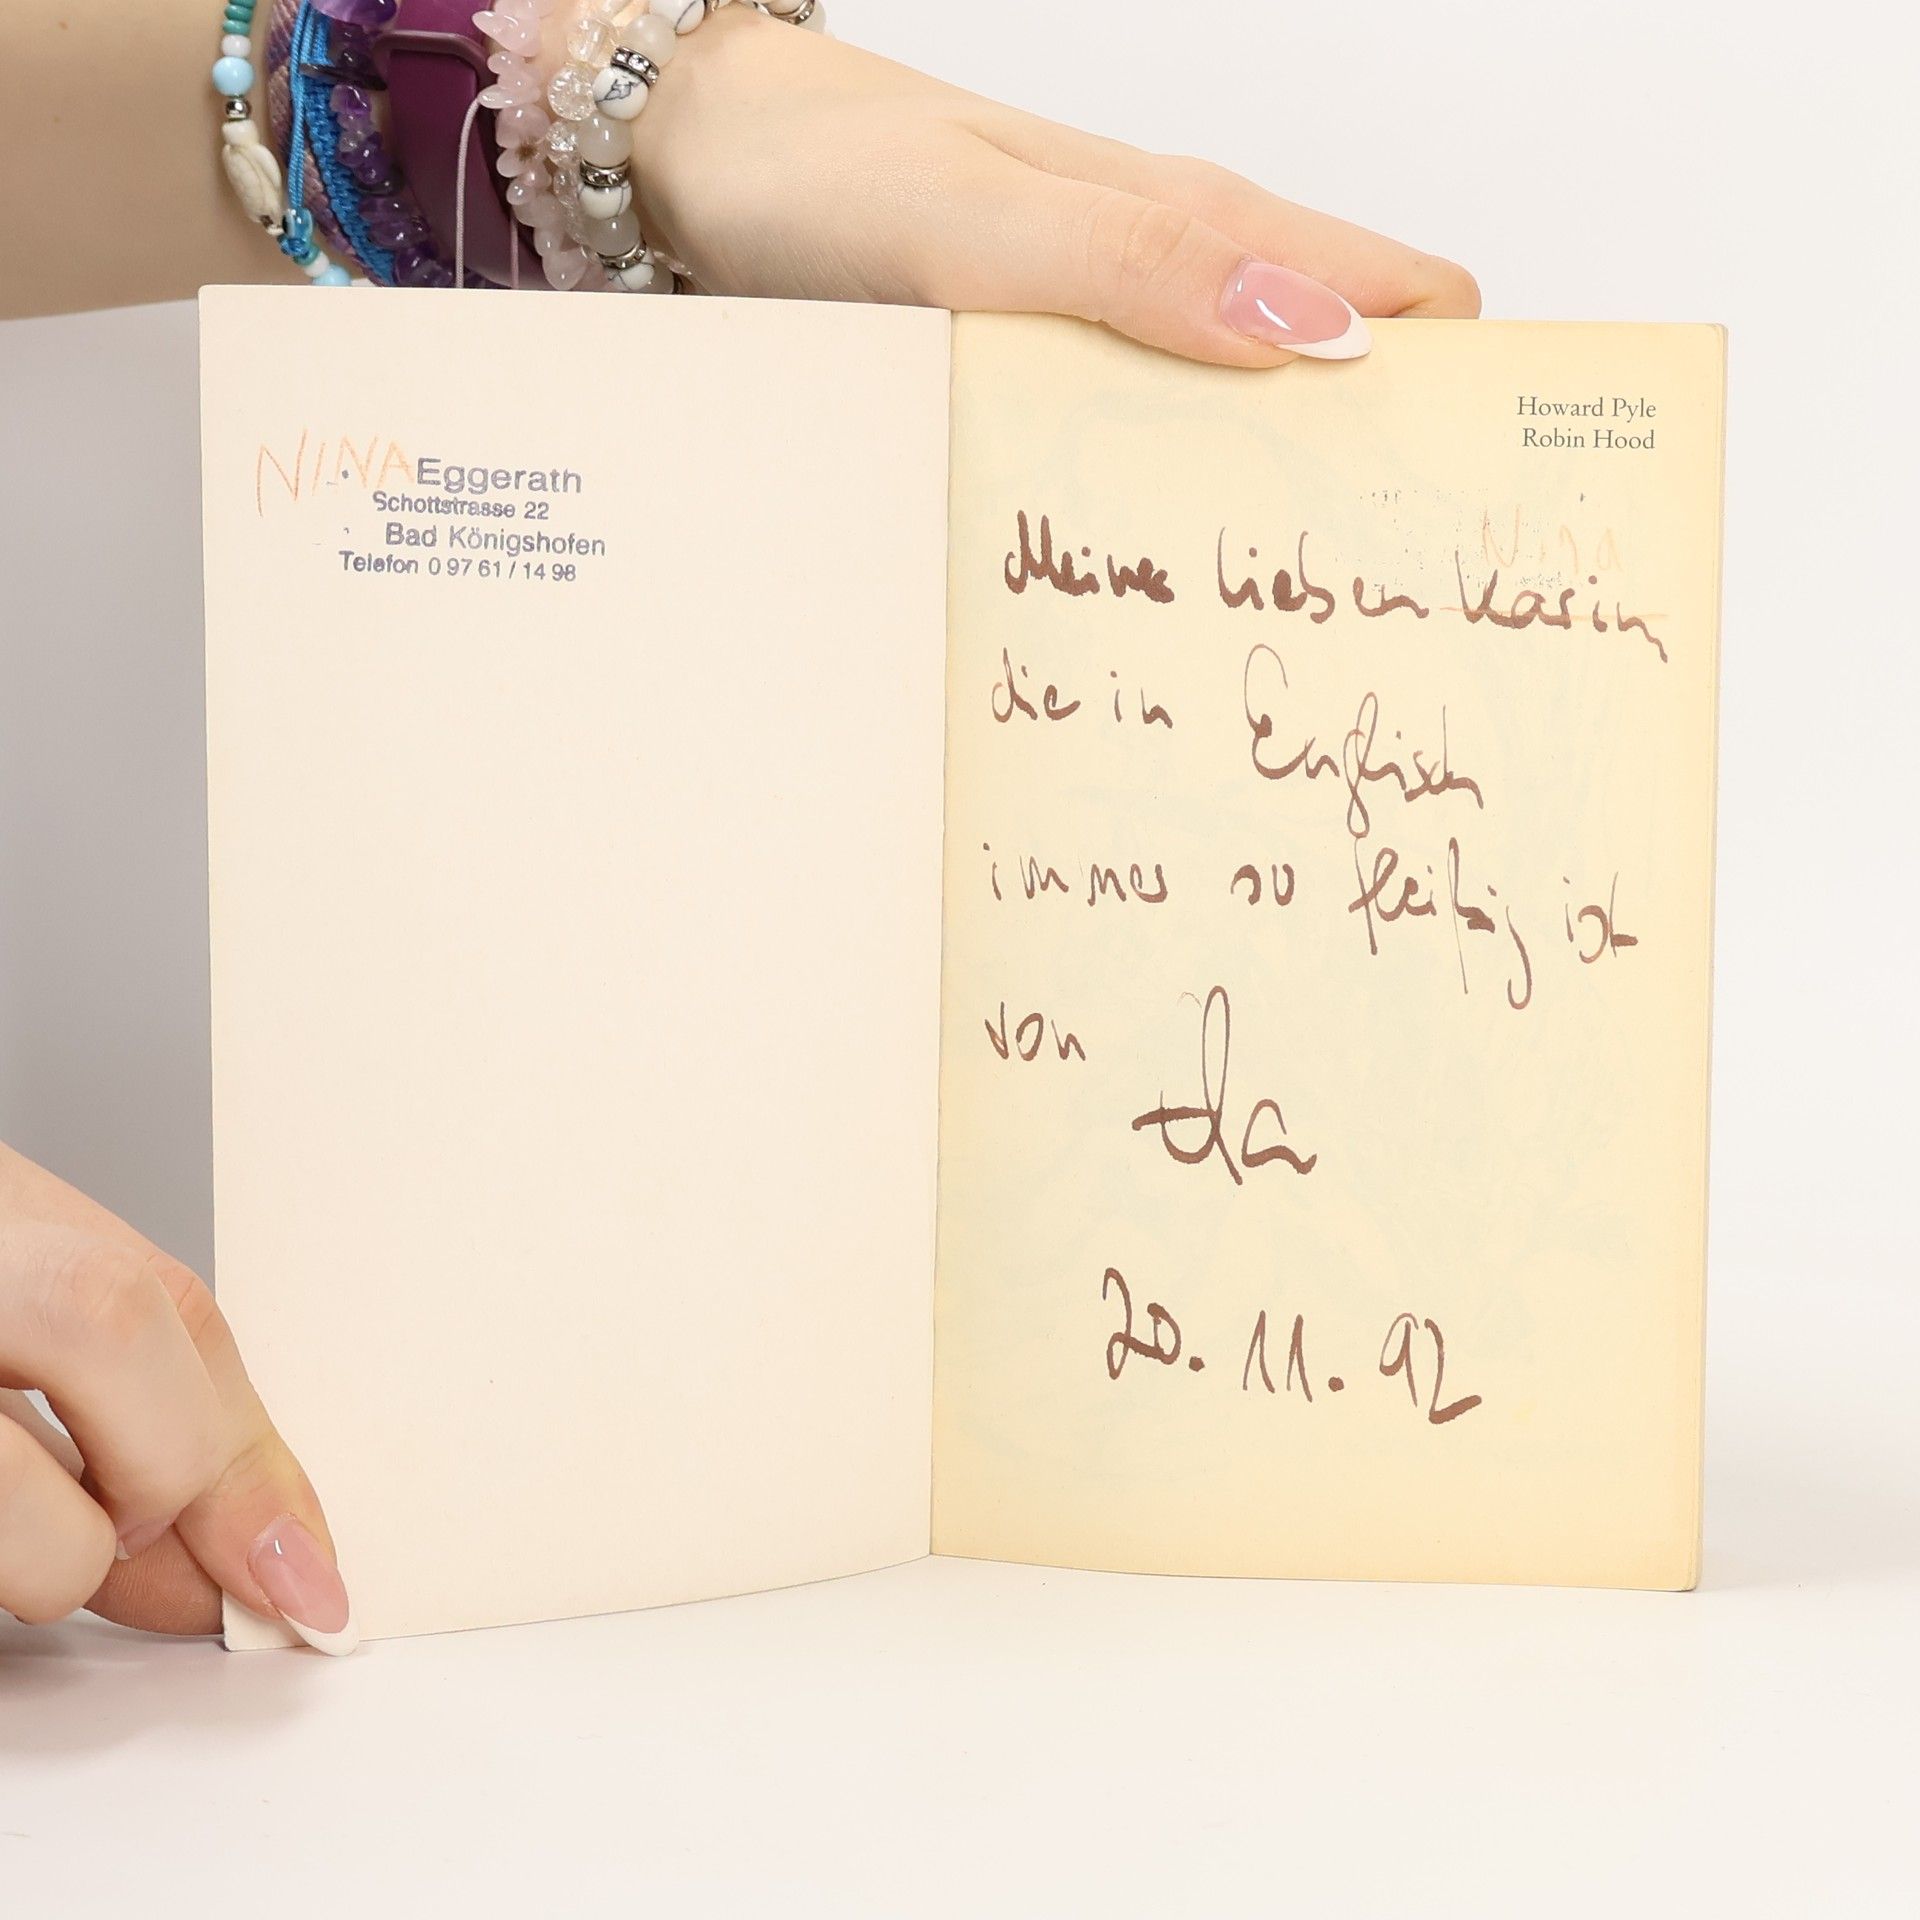 NINA Eggerath
Schottstrasse 22
Bad Königshofen
Telefon 0 97 61 / 14 98
Howard Pyle
Robin Hood
Nina
Meiner lieben Karin
die in Englisch
immer so fleißig ist
von
20. 11. 92